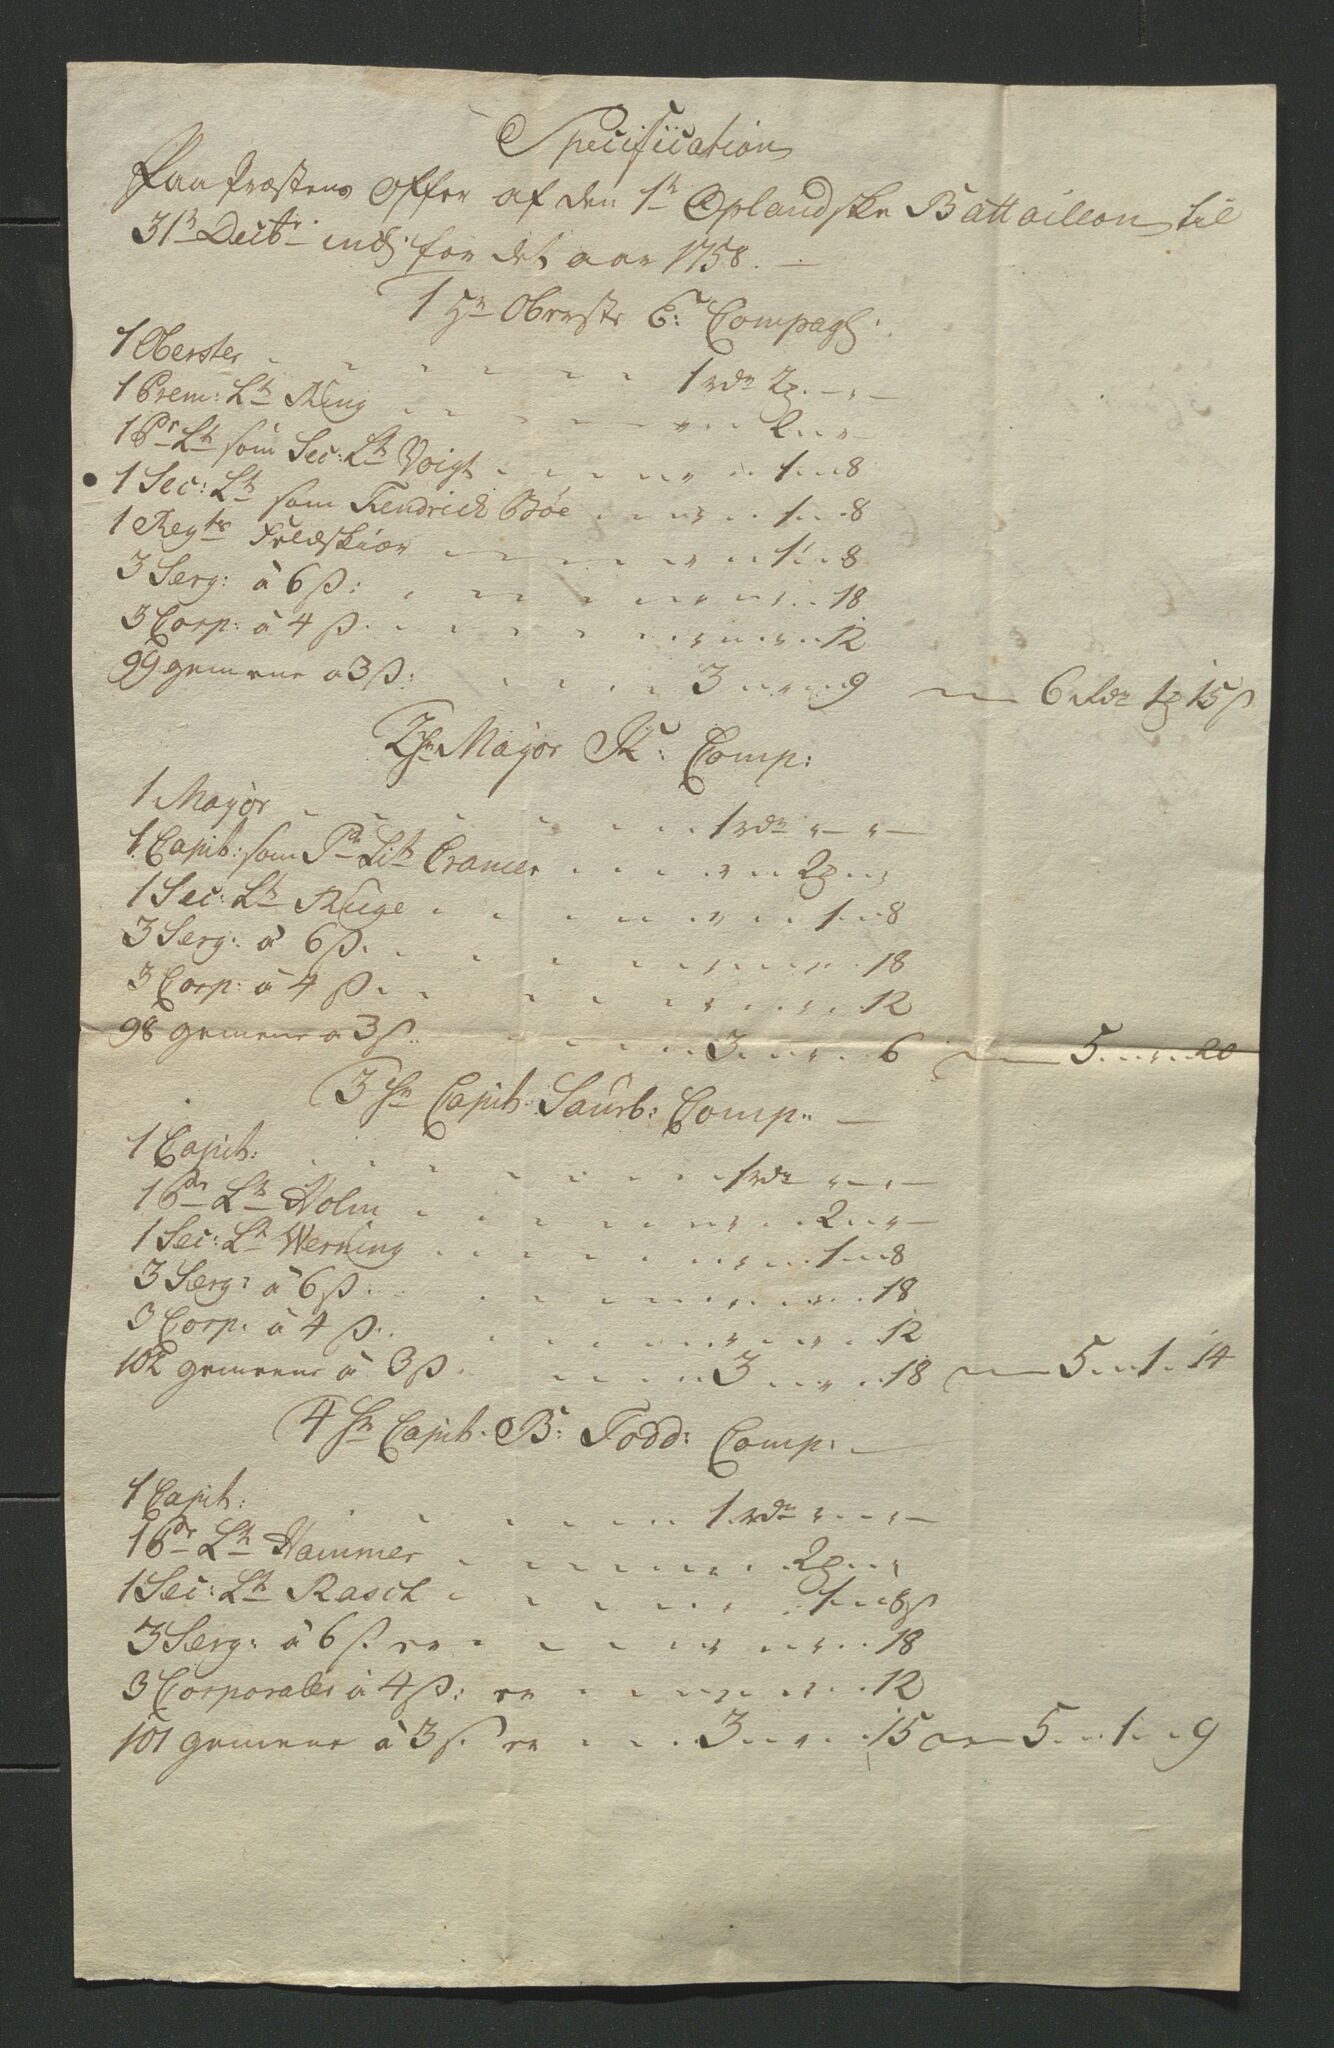 Specification
Paa Præstens Offer af den 1te Oplandske Battaillon til
31te Decbr: incl: for det aar 1758. —
1 Hr Oberste C: Compag:
1 Oberster . . . . . . 1 rdr 2 ₰ . — „ —
1 Prem: Lt Ring . . . . . . „ . . 2 . . „ —
1 Pr Lt som Sec: Lt Voigt . . . . . „ . . 1 . . 8
1 Sec: Lt som Fendrich Böe . . . . „ . . 1 . . 8
1 Regts Feldskiær . . . . . „ . . 1 . . 8
3 Serg: à 6 ß: . . . . . . „ . . „ . . 18
3 Corp: à 4 ß . . . . . . „ . . „ . . 12
99 gemene a 3 ß: . . . . 3 . . „ . . 9 — 6 Rdr 1 ₰ 15 ß
2 Hr Major R: Comp:
1 Major . . . . . . 1 rdr „ — „ —
1 Capit: som Pr Lit Cramer . . . . „ . . 2 ₰ . . „
1 Sec: Lt Ruge . . . . . „ . . 1 . . 8
3 Serg: à 6 ß. . . . . „ . . „ . . 18
3 Corp: à 4 ß . . . . . „ . . „ . . 12
98 gemene a 3 ß . . . . . 3 . . „ . . 6 — 5 . . „ . . 20
3 Hr Capit: Saurb: Comp: —
1 Capit: . . . . . . 1 rdr „ — „ —
1 Pr Lt Holm . . . . . „ . . 2 . . „ —
1 Sec: Lt Werning . . . . . „ . . 1 . . 8
3 Serg: à 6 ß . . . . . „ . . „ . . 18
3 Corp: à 4 ß . . . . . „ . . „ . . 12
102 gemeene à 3 ß . . . . . 3 . . „ . . 18 — 5 . . 1 . 14
4 Hr Capit. B: Todd: Comp: —
1 Capit: . . . . . . 1 rdr „ . . „ —
1 Pr Lt Hammer . . . . . . 2 ₰ . . „
1 Sec: Lt Rasch . . . . . „ . . 1 . . 8 ß
3 Serg: à 6 ß er . . . . . „ . . „ . . 18
3 Corporaler à 4 ß: er . . . . „ . . „ . . 12
101 gemene à 3 ß. er . . . . 3 . . „ . . 15 — 5 . . 1 . . 9